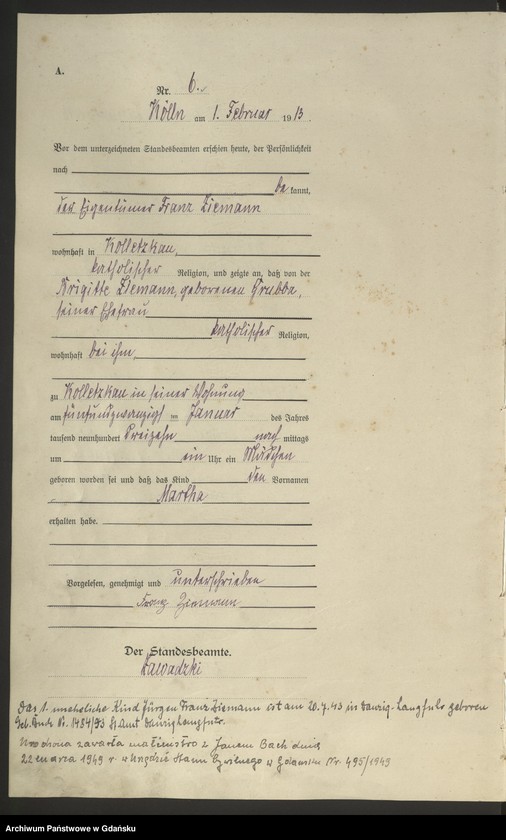 A.
Nr. 6.
Kölln am 1. Februar 1913.
Vor dem unterzeichneten Standesbeamten erschien heute, der Persönlichkeit
nach
bekannt,
der Eigentümer Franz Ziemann
wohnhaft in Kolletzkau,
katholischer Religion, und zeigte an, daß von der
Brigitte Ziemann, geborenen Grubba,
seiner Ehefrau
katholischer Religion,
wohnhaft bei ihm,
zu Kolletzkau in seiner Wohnung
am fünfundzwanzigst en Januar des Jahres
tausend neunhundert Dreizehn nach mittags
um ein Uhr ein Mädchen
geboren worden sei und daß das Kind den Vornamen
Martha
erhalten habe.
Vorgelesen, genehmigt und unterschrieben
Franz Ziemann
Der Standesbeamte.
Zawadzki
Das 1. uneheliche Kind Jürgen Franz Ziemann ist am 20.7.43 in Danzig-Langfuhr geboren
Geb. Buch Nr. 1484/93 St. Amt Danzig Langfuhr.
Wzochrona zawarła małżeństwo z Janem Bach dnia
22 marca 1949 r. w Urzędzie Stanu Cywilnego w Gdańsku Nr. 495/1949
Archiwum Państwowe w Gdańsku